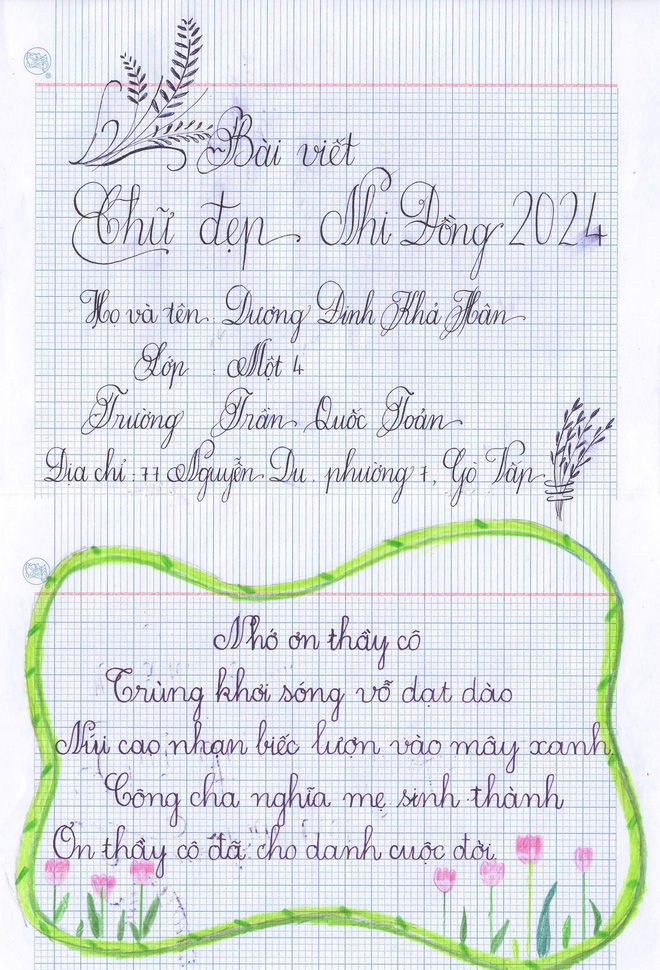 Bài viết
Chữ đẹp Nhi Đồng 2024
Họ và tên: Dương Đình Khả Hân
Lớp : Một 4
Trường Trần Quốc Toản
Địa chỉ: 77 Nguyễn Du, phường 7, Gò Vấp
Nhớ ơn thầy cô
Trùng khơi sóng vỗ dạt dào
Núi cao nhạn biếc lượn vào mây xanh
Công cha nghĩa mẹ sinh thành
Ơn thầy cô đã cho danh cuộc đời.